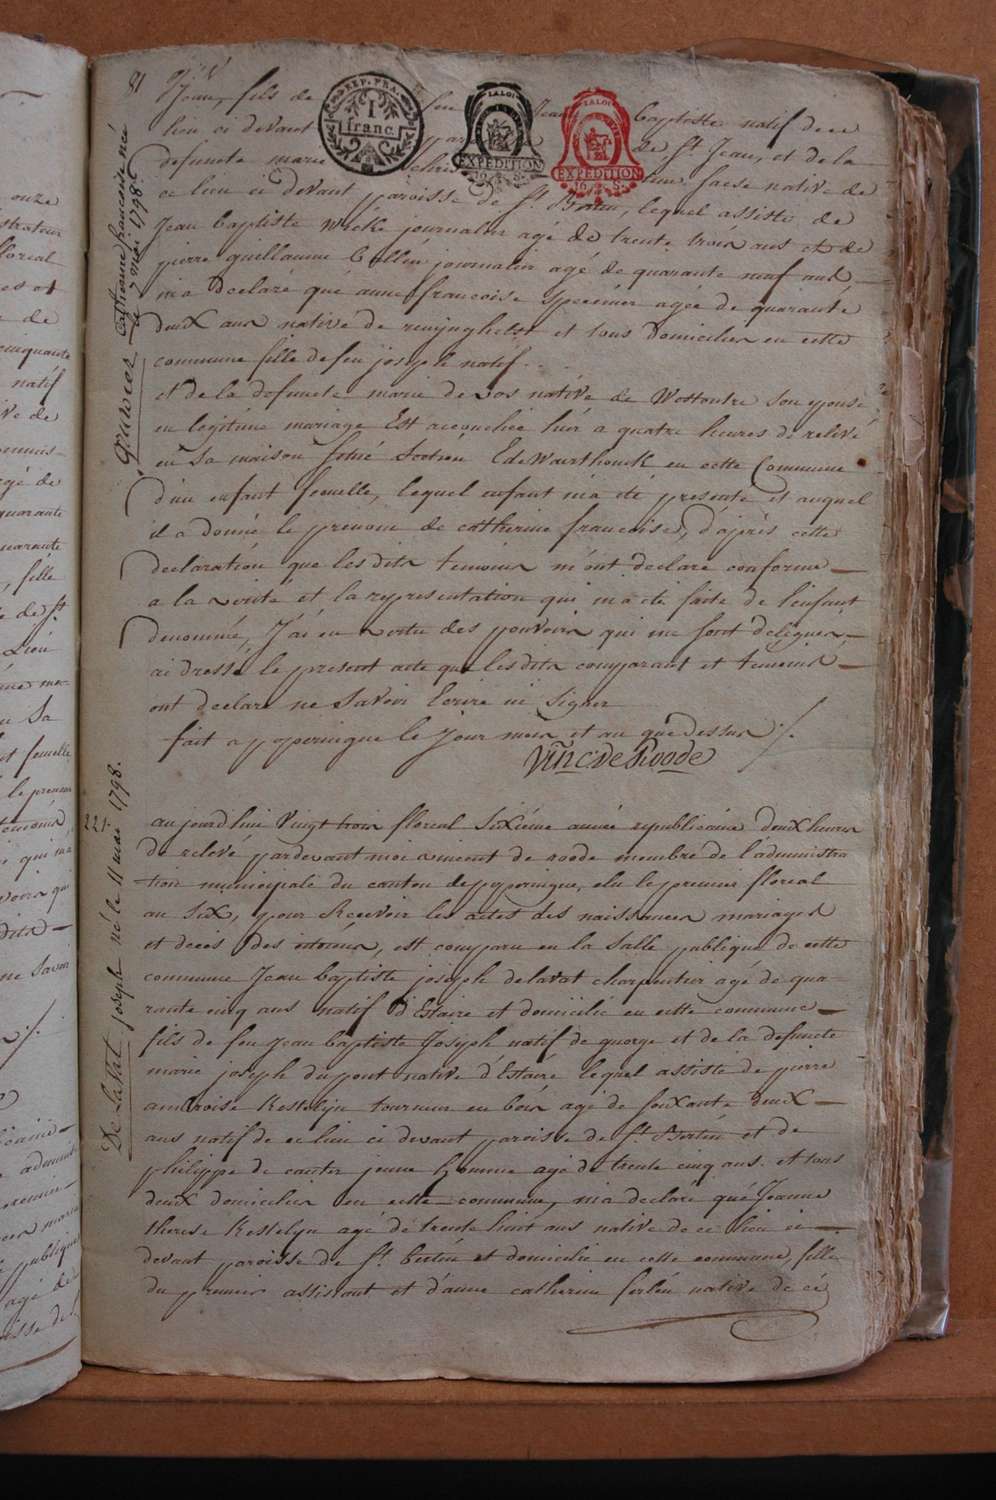 81
Jean, fils de feu Jean baptiste natif de ce
lieu ci devant paroisse de St Jean, et de la
defuncte marie native de
ce lieu ci devant paroisse de St Bertin, lequel assisté de
Jean baptiste journalier agé de trente trois ans et de
pierre guillaume journalier agé de quarante neuf ans
m'a declaré que anne francoise agée de quarante
deux ans native de reninghelst et tous domicilier en cette
commune fille de feu joseph natif
et de la defuncte marie de vos native de Westoutre son epouse
en legitime mariage Est accouchée hier a quatre heures de relevé
en sa maison en cette Commune
d'un enfant femelle, lequel enfant m'a été presenté et auquel
il a donné le prenom de catherine francoise, d'après cette
declaration que les dits temoins m'ont declaré conforme
a la verité et la representation qui m'a été faite de l'enfant
denommé, J'ai en vertu des pouvoirs qui me sont delégués,
ai dressé le present acte que les dits comparant et temoins
ont declaré ne Savoir Ecrire ni Signer
fait a poperingue le Jour mois et an que dessus
Vinc: De Roode
catherine francoise née
le 7 mai 1798.
221.
De Lavat joseph né le 11 mai 1798.
aujourdhui Vingt trois floreal Sixiéme année republicaine deux heures
de relevé pardevant moi vincent de roode membre de l'administra
tion municipale du canton de poperingue, elu le premier floreal
an six, pour Recevoir les actes des naissances mariages
et decès des citoiens, est comparu en la Salle publique de cette
commune Jean baptiste joseph delavat charpentier agé de qua
rante cinq ans natif d'Estaire et domicilié en cette commune
fils de feu jean baptiste Joseph natif de et de la defuncte
marie joseph dupont native d'Estaire lequel assisté de pierre
ambroise Kestelyn tourneur en bois agé de soixante deux
ans natif de ce lieu ci devant paroisse de St Bertin et de
philippe de jeune homme agé de trente cinq ans et tous
deux domicilier en cette commune, m'a declaré que Jeanne
therese Kestelyn agé de trente huit ans native de ce lieu ci
devant paroisse de St Bertin et domicilié en cette commune, fille
du premier assistant et d'anne catherine native de cé
REP. FRA.
1
franc.
LA LOI
EXPEDITION
LA LOI
EXPEDITION